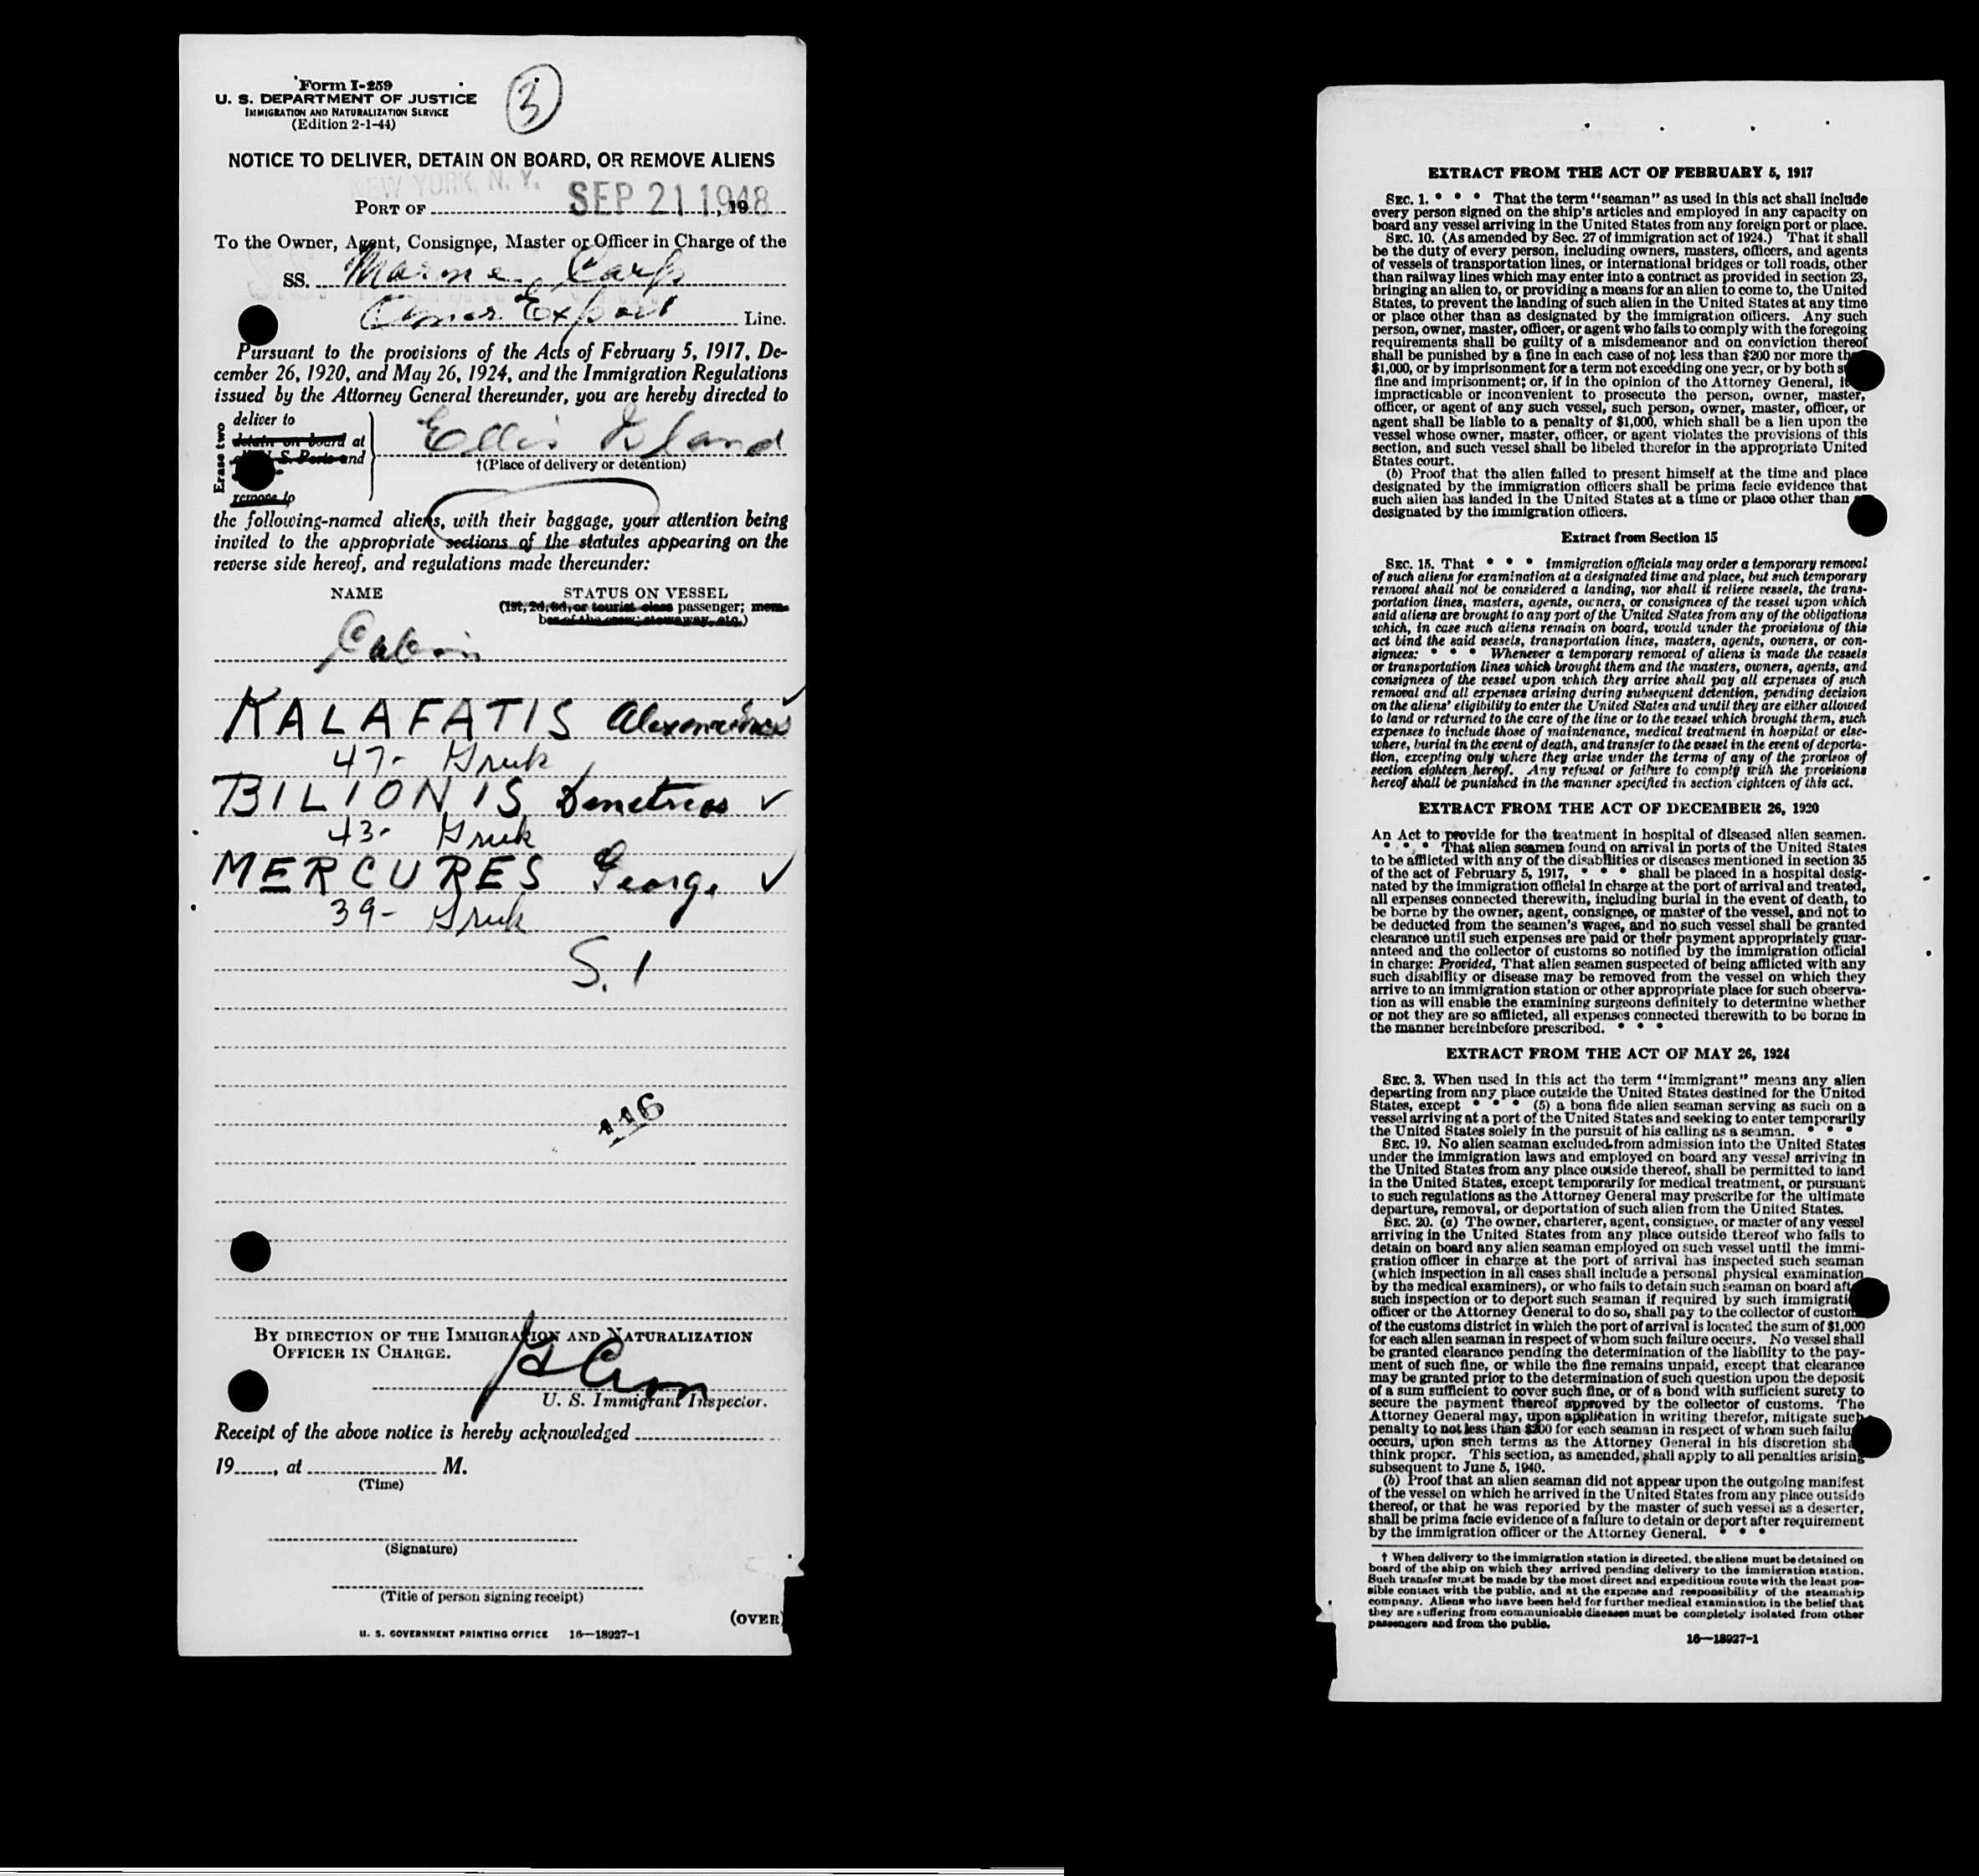 Form I-259
U. S. DEPARTMENT OF JUSTICE
IMMIGRATION AND NATURALIZATION SERVICE
(Edition 2-1-44)
3
NOTICE TO DELIVER, DETAIN ON BOARD, OR REMOVE ALIENS
NEW YORK, N. Y.
PORT OF SEP 21 1948, 19
To the Owner, Agent, Consignee, Master or Officer in Charge of the
SS. Marine Carp
Amer Export Line.
Pursuant to the provisions of the Acts of February 5, 1917, De-
cember 26, 1920, and May 26, 1924, and the Immigration Regulations
issued by the Attorney General thereunder, you are hereby directed to
Erase two
deliver to
detain on board at
all U. S. Ports and
remove to
Ellis Island
†(Place of delivery or detention)
the following-named aliens, with their baggage, your attention being
invited to the appropriate sections of the statutes appearing on the
reverse side hereof, and regulations made thereunder:
NAME STATUS ON VESSEL
(1st, 2d, 3d, or tourist class passenger; mem-
ber of the crew; stowaway, etc.)
Cabin
KALAFATIS
47- Greek
BILIONIS Demetrios ✓
43- Greek
MERCURES George ✓
39- Greek
S. 1
116
BY DIRECTION OF THE IMMIGRATION AND NATURALIZATION
OFFICER IN CHARGE.
U. S. Immigrant Inspector.
Receipt of the above notice is hereby acknowledged
19......, at M.
(Time)
(Signature)
(Title of person signing receipt)
(OVER)
U. S. GOVERNMENT PRINTING OFFICE 16—18027-1
EXTRACT FROM THE ACT OF FEBRUARY 5, 1917
SEC. 1. * * * That the term "seaman" as used in this act shall include
every person signed on the ship's articles and employed in any capacity on
board any vessel arriving in the United States from any foreign port or place.
SEC. 10. (As amended by Sec. 27 of immigration act of 1924.) That it shall
be the duty of every person, including owners, masters, officers, and agents
of vessels of transportation lines, or international bridges or toll roads, other
than railway lines which may enter into a contract as provided in section 23,
bringing an alien to, or providing a means for an alien to come to, the United
States, to prevent the landing of such alien in the United States at any time
or place other than as designated by the immigration officers. Any such
person, owner, master, officer, or agent who fails to comply with the foregoing
requirements shall be guilty of a misdemeanor and on conviction thereof
shall be punished by a fine in each case of not less than $200 nor more th
$1,000, or by imprisonment for a term not exceeding one year, or by both s
fine and imprisonment; or, if in the opinion of the Attorney General, i
impracticable or inconvenient to prosecute the person, owner, master,
officer, or agent of any such vessel, such person, owner, master, officer, or
agent shall be liable to a penalty of $1,000, which shall be a lien upon the
vessel whose owner, master, officer, or agent violates the provisions of this
section, and such vessel shall be libeled therefor in the appropriate United
States court.
(b) Proof that the alien failed to present himself at the time and place
designated by the immigration officers shall be prima facie evidence that
such alien has landed in the United States at a time or place other than
designated by the immigration officers.
Extract from Section 15
SEC. 15. That * * * immigration officials may order a temporary removal
of such aliens for examination at a designated time and place, but such temporary
removal shall not be considered a landing, nor shall it relieve vessels, the trans-
portation lines, masters, agents, owners, or consignees of the vessel upon which
said aliens are brought to any port of the United States from any of the obligations
which, in case such aliens remain on board, would under the provisions of this
act bind the said vessels, transportation lines, masters, agents, owners, or con-
signees: * * * Whenever a temporary removal of aliens is made the vessels
or transportation lines which brought them and the masters, owners, agents, and
consignees of the vessel upon which they arrive shall pay all expenses of such
removal and all expenses arising during subsequent detention, pending decision
on the aliens' eligibility to enter the United States and until they are either allowed
to land or returned to the care of the line or to the vessel which brought them, such
expenses to include those of maintenance, medical treatment in hospital or else-
where, burial in the event of death, and transfer to the vessel in the event of deporta-
tion, excepting only where they arise under the terms of any of the provisos of
section eighteen hereof. Any refusal or failure to comply with the provisions
hereof shall be punished in the manner specified in section eighteen of this act.
EXTRACT FROM THE ACT OF DECEMBER 26, 1920
An Act to provide for the treatment in hospital of diseased alien seamen.
* * * That alien seamen found on arrival in ports of the United States
to be afflicted with any of the disabilities or diseases mentioned in section 35
of the act of February 5, 1917, * * * shall be placed in a hospital desig-
nated by the immigration official in charge at the port of arrival and treated,
all expenses connected therewith, including burial in the event of death, to
be borne by the owner, agent, consignee, or master of the vessel, and not to
be deducted from the seamen's wages, and no such vessel shall be granted
clearance until such expenses are paid or their payment appropriately guar-
anteed and the collector of customs so notified by the immigration official
in charge: Provided, That alien seamen suspected of being afflicted with any
such disability or disease may be removed from the vessel on which they
arrive to an immigration station or other appropriate place for such observa-
tion as will enable the examining surgeons definitely to determine whether
or not they are so afflicted, all expenses connected therewith to be borne in
the manner hereinbefore prescribed. * * *
EXTRACT FROM THE ACT OF MAY 26, 1924
SEC. 3. When used in this act the term "immigrant" means any alien
departing from any place outside the United States destined for the United
States, except * * * (5) a bona fide alien seaman serving as such on a
vessel arriving at a port of the United States and seeking to enter temporarily
the United States solely in the pursuit of his calling as a seaman. * * *
SEC. 19. No alien seaman excluded from admission into the United States
under the immigration laws and employed on board any vessel arriving in
the United States from any place outside thereof, shall be permitted to land
in the United States, except temporarily for medical treatment, or pursuant
to such regulations as the Attorney General may prescribe for the ultimate
departure, removal, or deportation of such alien from the United States.
SEC. 20. (a) The owner, charterer, agent, consignee, or master of any vessel
arriving in the United States from any place outside thereof who fails to
detain on board any alien seaman employed on such vessel until the immi-
gration officer in charge at the port of arrival has inspected such seaman
(which inspection in all cases shall include a personal physical examination
by the medical examiners), or who fails to detain such seaman on board aft
such inspection or to deport such seaman if required by such immigrati
officer or the Attorney General to do so, shall pay to the collector of custom
of the customs district in which the port of arrival is located the sum of $1,000
for each alien seaman in respect of whom such failure occurs. No vessel shall
be granted clearance pending the determination of the liability to the pay-
ment of such fine, or while the fine remains unpaid, except that clearance
may be granted prior to the determination of such question upon the deposit
of a sum sufficient to cover such fine, or of a bond with sufficient surety to
secure the payment thereof approved by the collector of customs. The
Attorney General may, upon application in writing therefor, mitigate such
penalty to not less than $200 for each seaman in respect of whom such failu
occurs, upon such terms as the Attorney General in his discretion sha
think proper. This section, as amended, shall apply to all penalties arising
subsequent to June 5, 1940.
(b) Proof that an alien seaman did not appear upon the outgoing manifest
of the vessel on which he arrived in the United States from any place outside
thereof, or that he was reported by the master of such vessel as a deserter,
shall be prima facie evidence of a failure to detain or deport after requirement
by the immigration officer or the Attorney General. * * *
† When delivery to the immigration station is directed, the aliens must be detained on
board of the ship on which they arrived pending delivery to the immigration station.
Such transfer must be made by the most direct and expeditious route with the least pos-
sible contact with the public, and at the expense and responsibility of the steamship
company. Aliens who have been held for further medical examination in the belief that
they are suffering from communicable diseases must be completely isolated from other
passengers and from the public.
16—18027-1